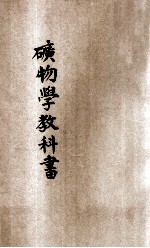 礦物學教科書